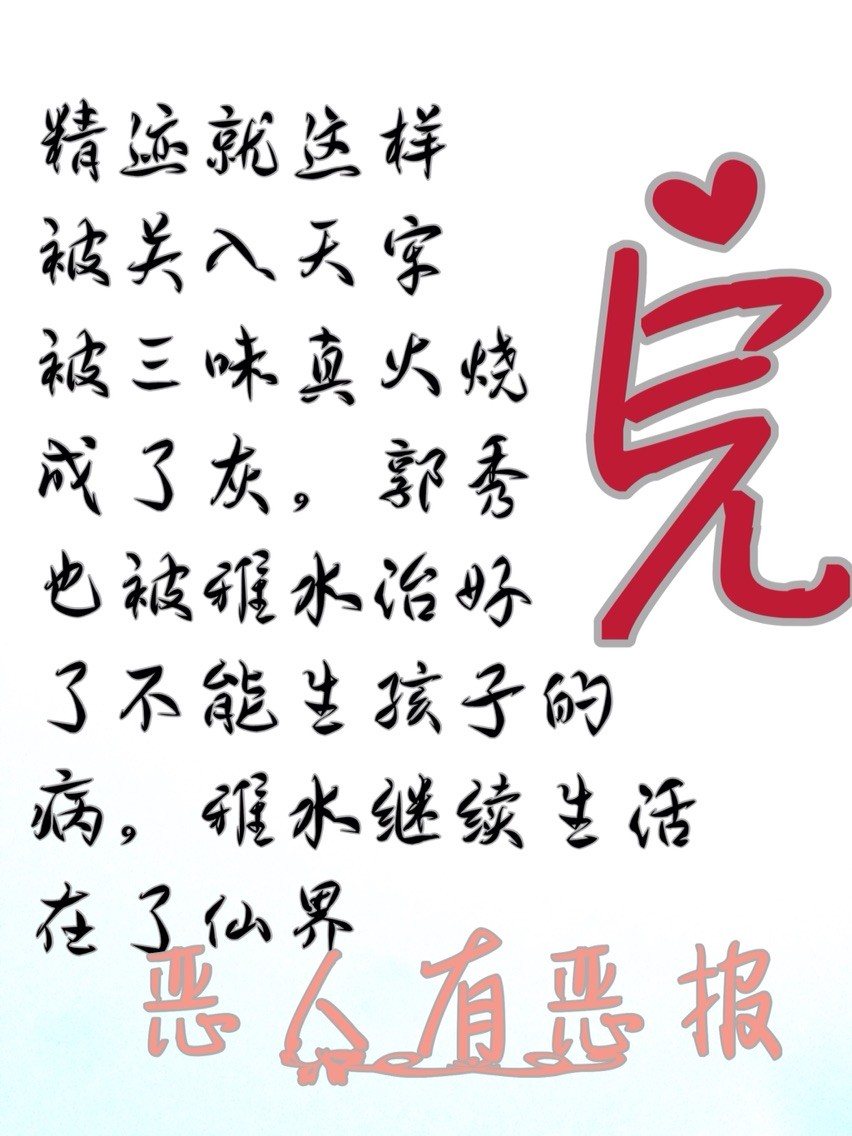 精迹就这样
被关入天牢
被三味真火烧
成了灰，郭秀
也被雅水治好
了不能生孩子的
病，雅水继续生活
在了仙界
完
恶人有恶报